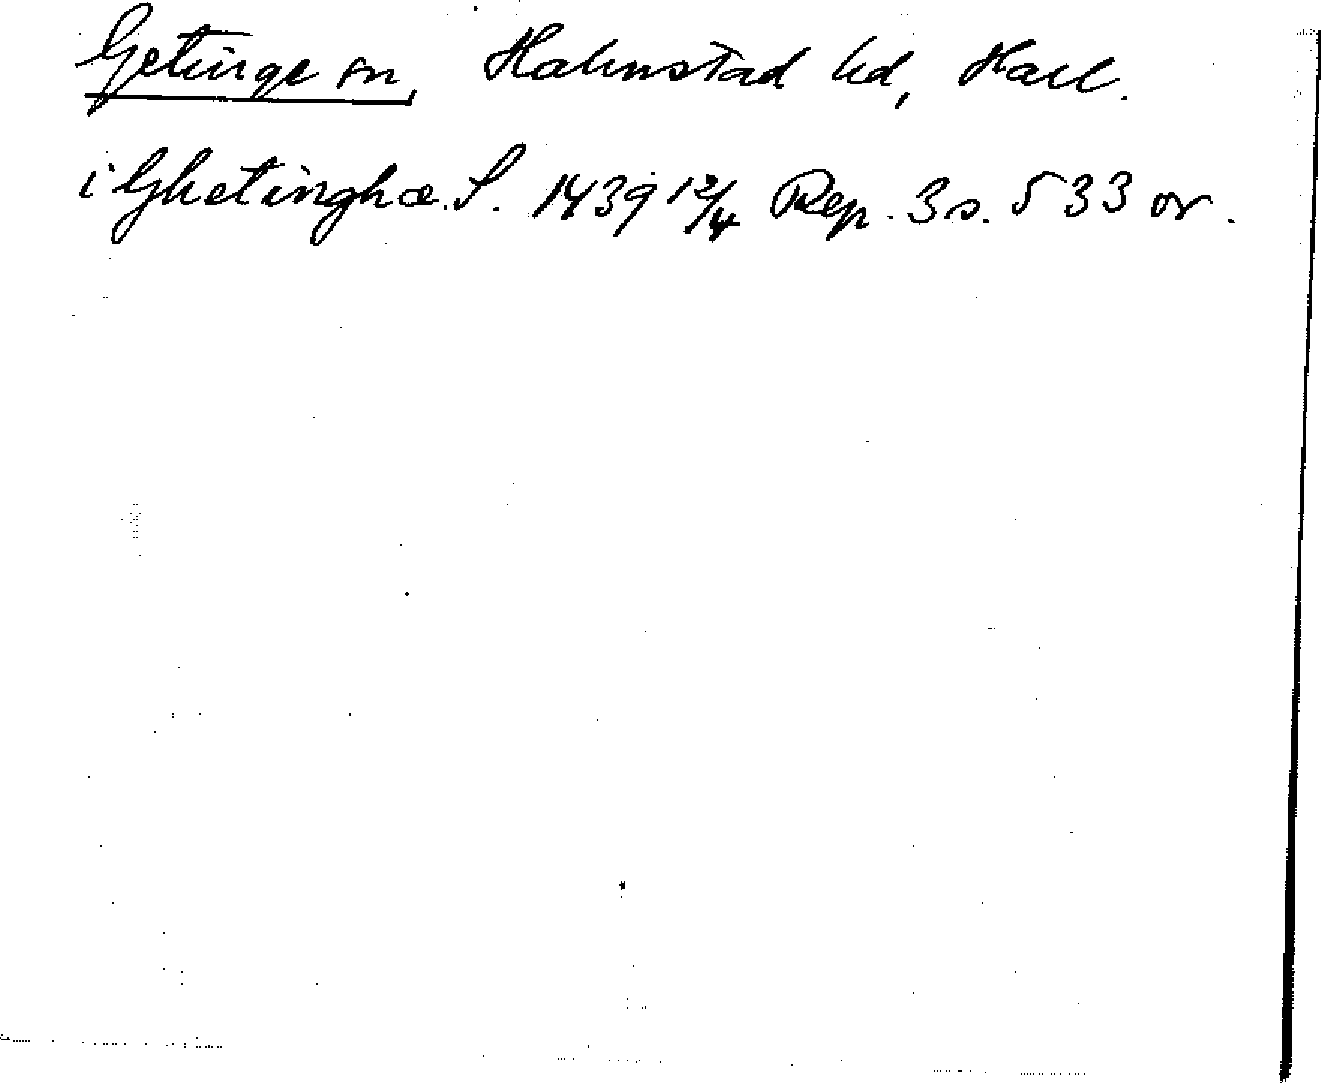 Getinge sn, Halmstad hd, Hall.
i Ghetinghæ. S. 1439 12/4 Rep. 3 s. 533 or.